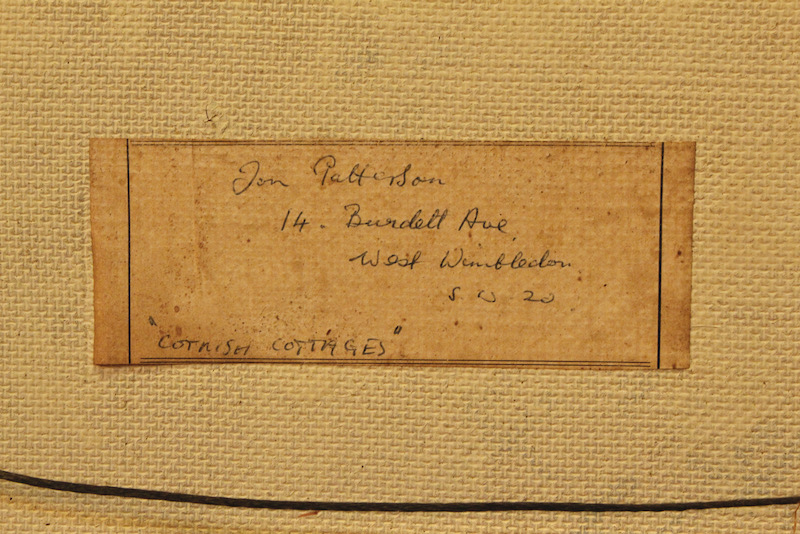 Jon Patterson
14. Burdett Ave
West Wimbledon
S W 20
"CORNISH COTTAGES"